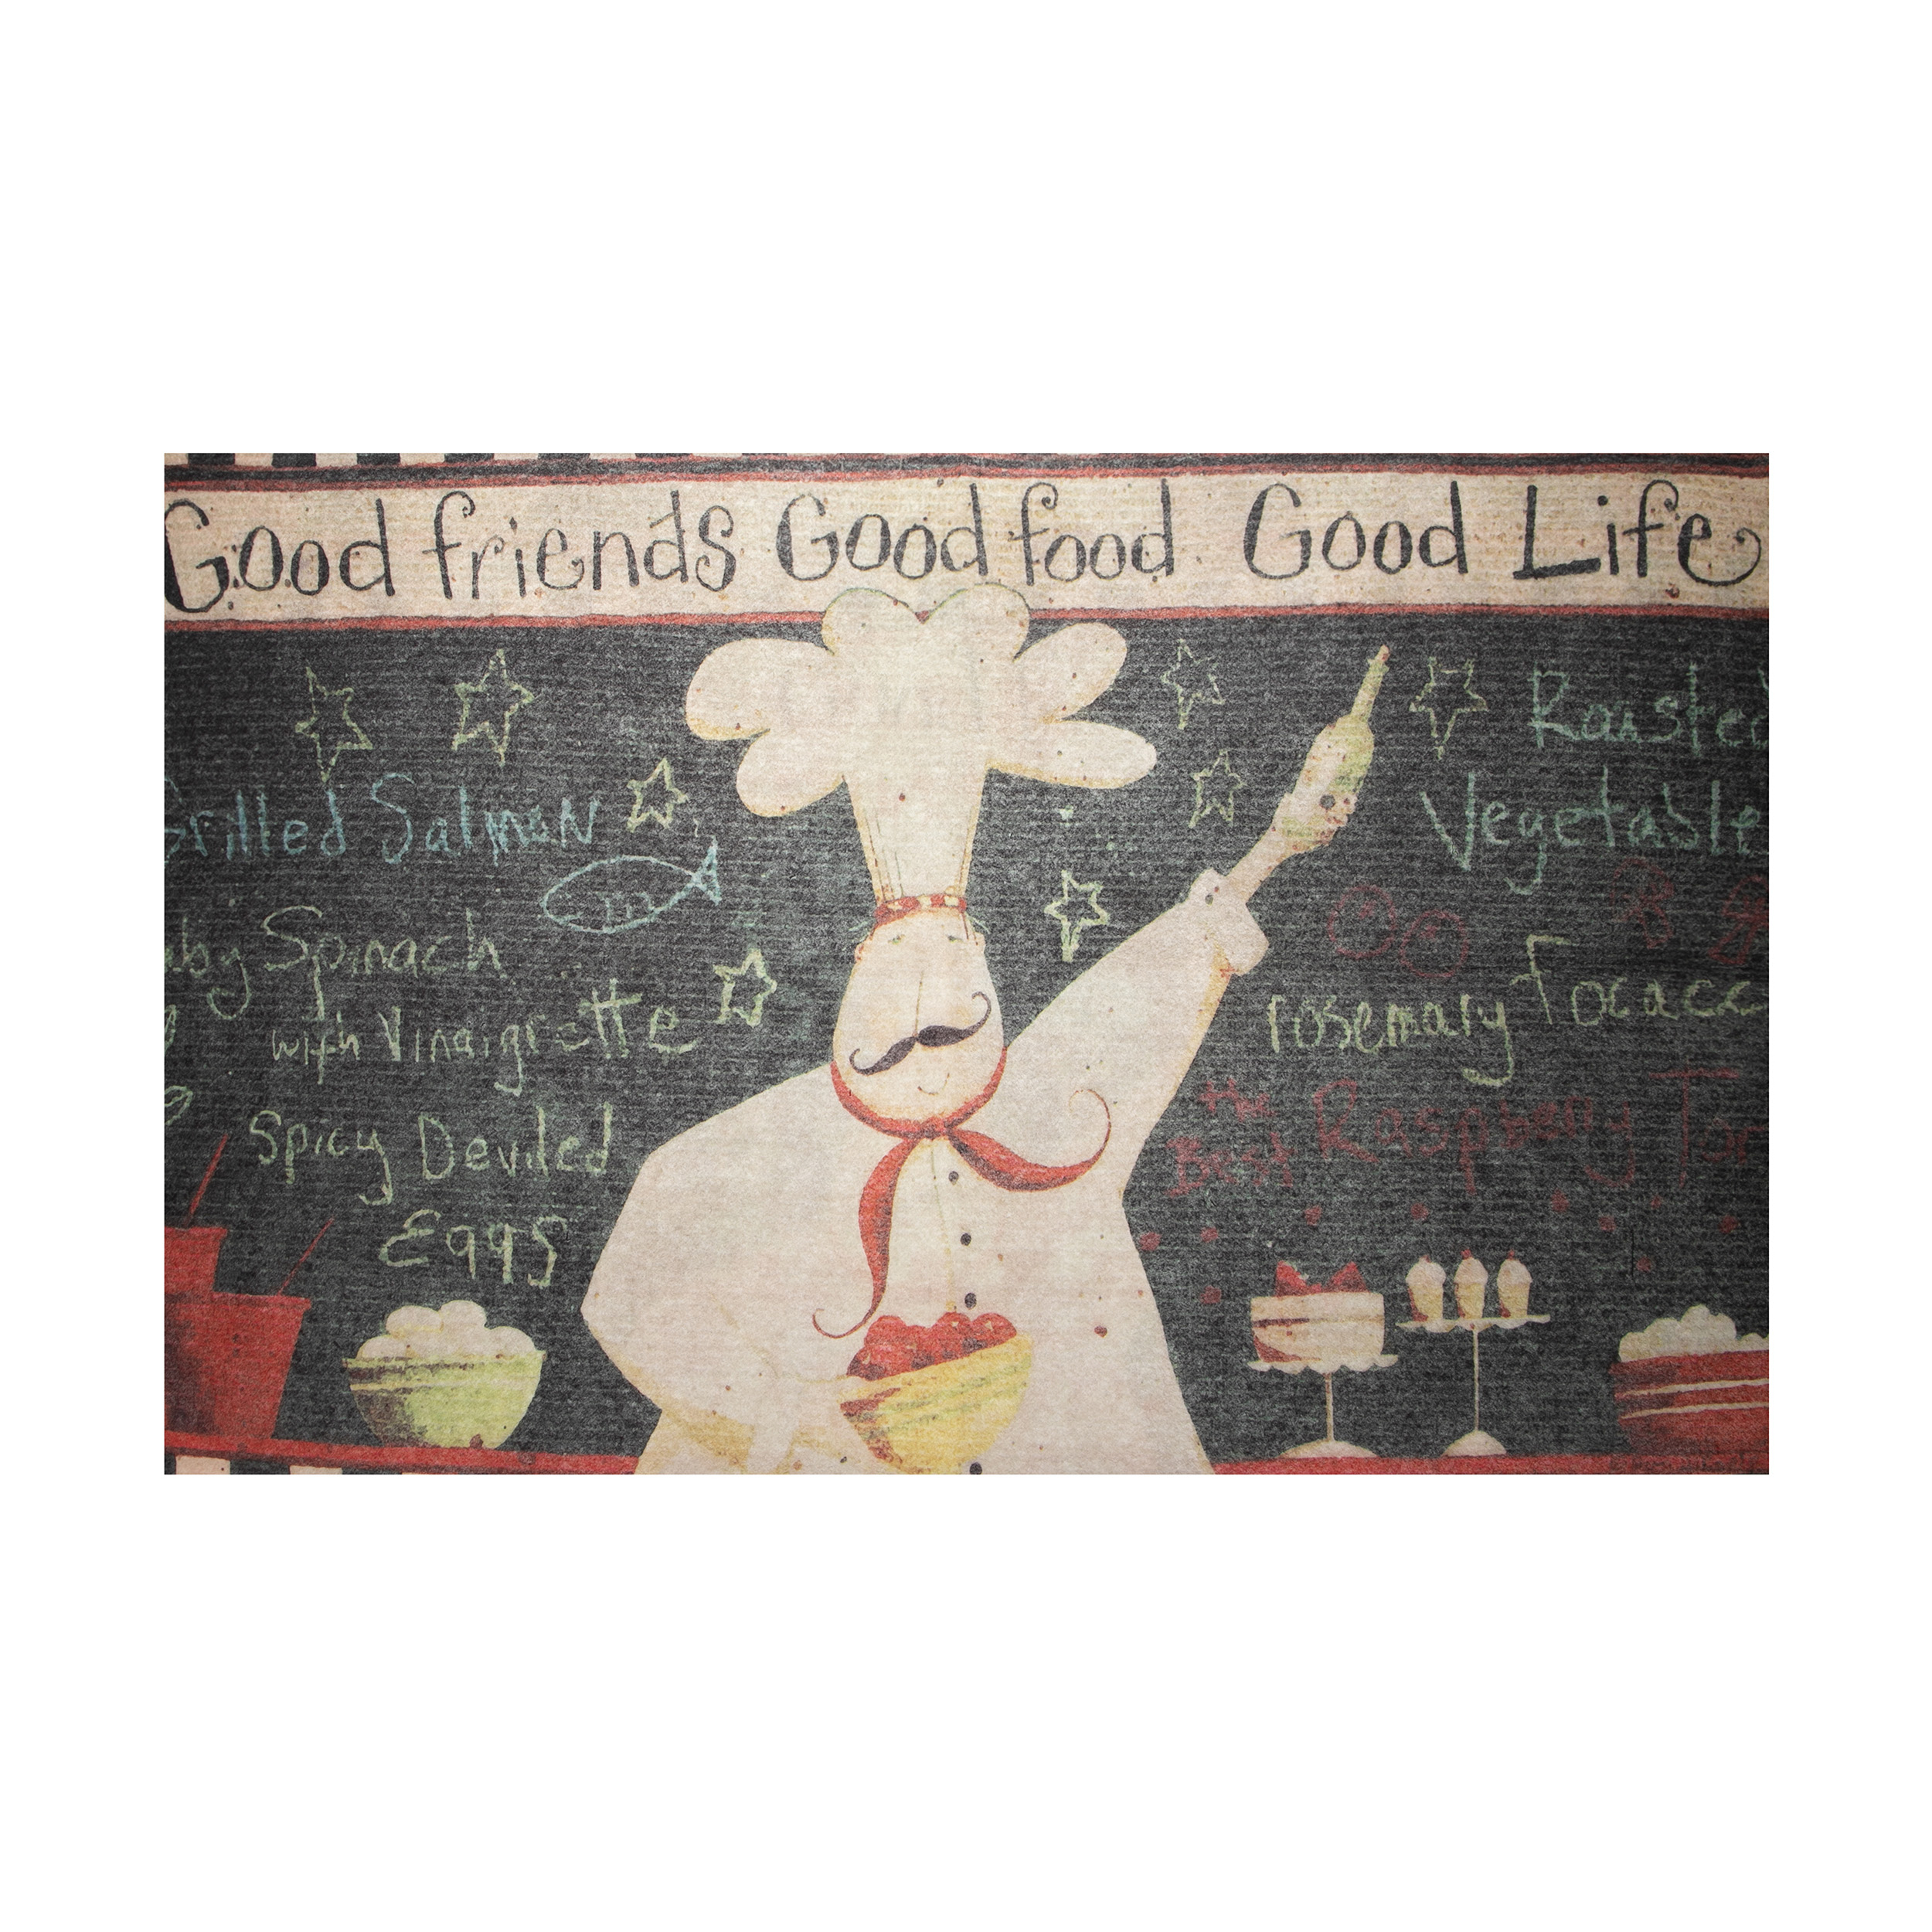 Good friends Good food Good Life
Grilled Salmon
aby Spinach
with Vinaigrette
Spicy Deviled
Eggs
Roasted
Vegetable
rosemary Focacc
the
Best Raspberry Tar